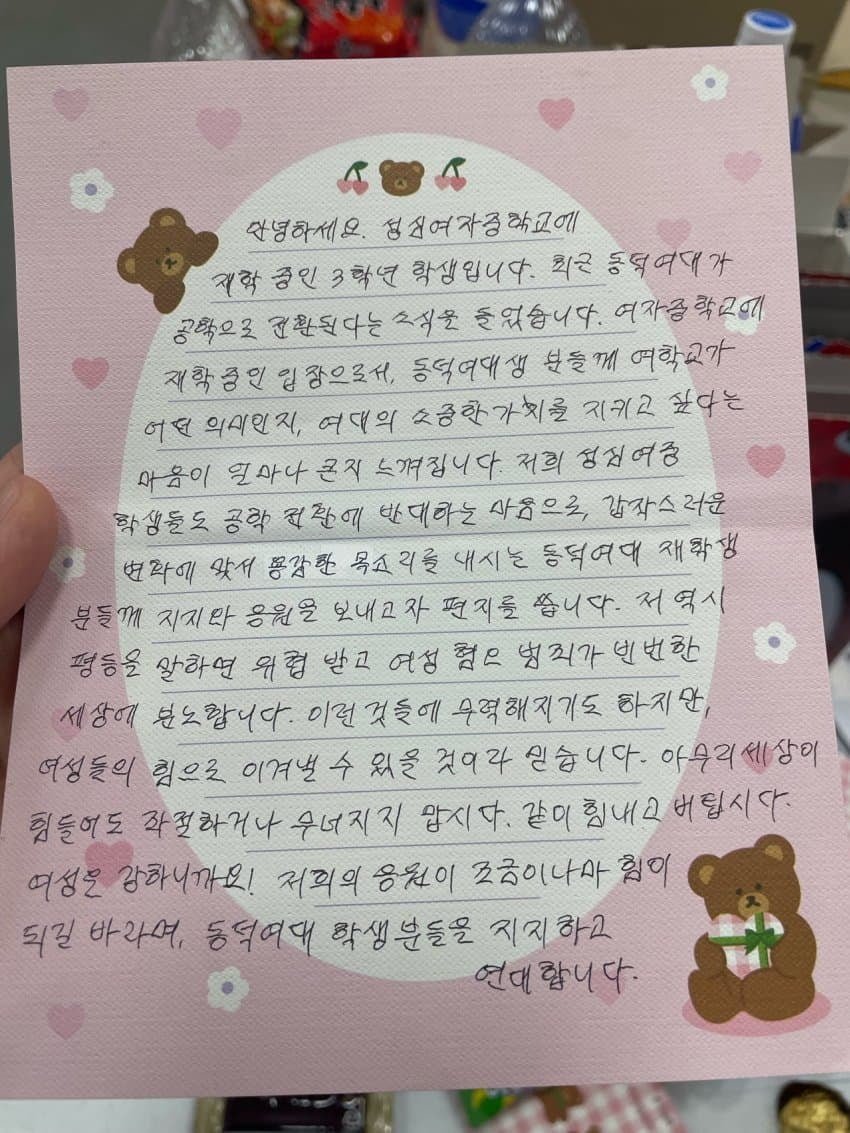 안녕하세요. 성심여자중학교에
재학 중인 3학년 학생입니다. 최근 동덕여대가
공학으로 전환된다는 소식을 들었습니다. 여자중학교에
재학중인 입장으로서, 동덕여대생 분들께 여학교가
어떤 의미인지, 여대의 소중한 가치를 지키고 싶다는
마음이 얼마나 큰지 느껴집니다. 저희 성심여중
학생들도 공학 전환에 반대하는 마음으로, 갑작스러운
변화에 맞서 용감한 목소리를 내시는 동덕여대 재학생
분들께 지지와 응원을 보내고자 편지를 씁니다. 저 역시
평등을 말하면 위협 받고 여성 혐오 범죄가 빈번한
세상에 분노합니다. 이런 것들에 무력해지기도 하지만,
여성들의 힘으로 이겨낼 수 있을 것이라 믿습니다. 아무리 세상이
힘들어도 좌절하거나 무너지지 맙시다. 같이 힘내고 버팁시다.
여성은 강하니까요! 저희의 응원이 조금이나마 힘이
되길 바라며, 동덕여대 학생분들을 지지하고
연대합니다.